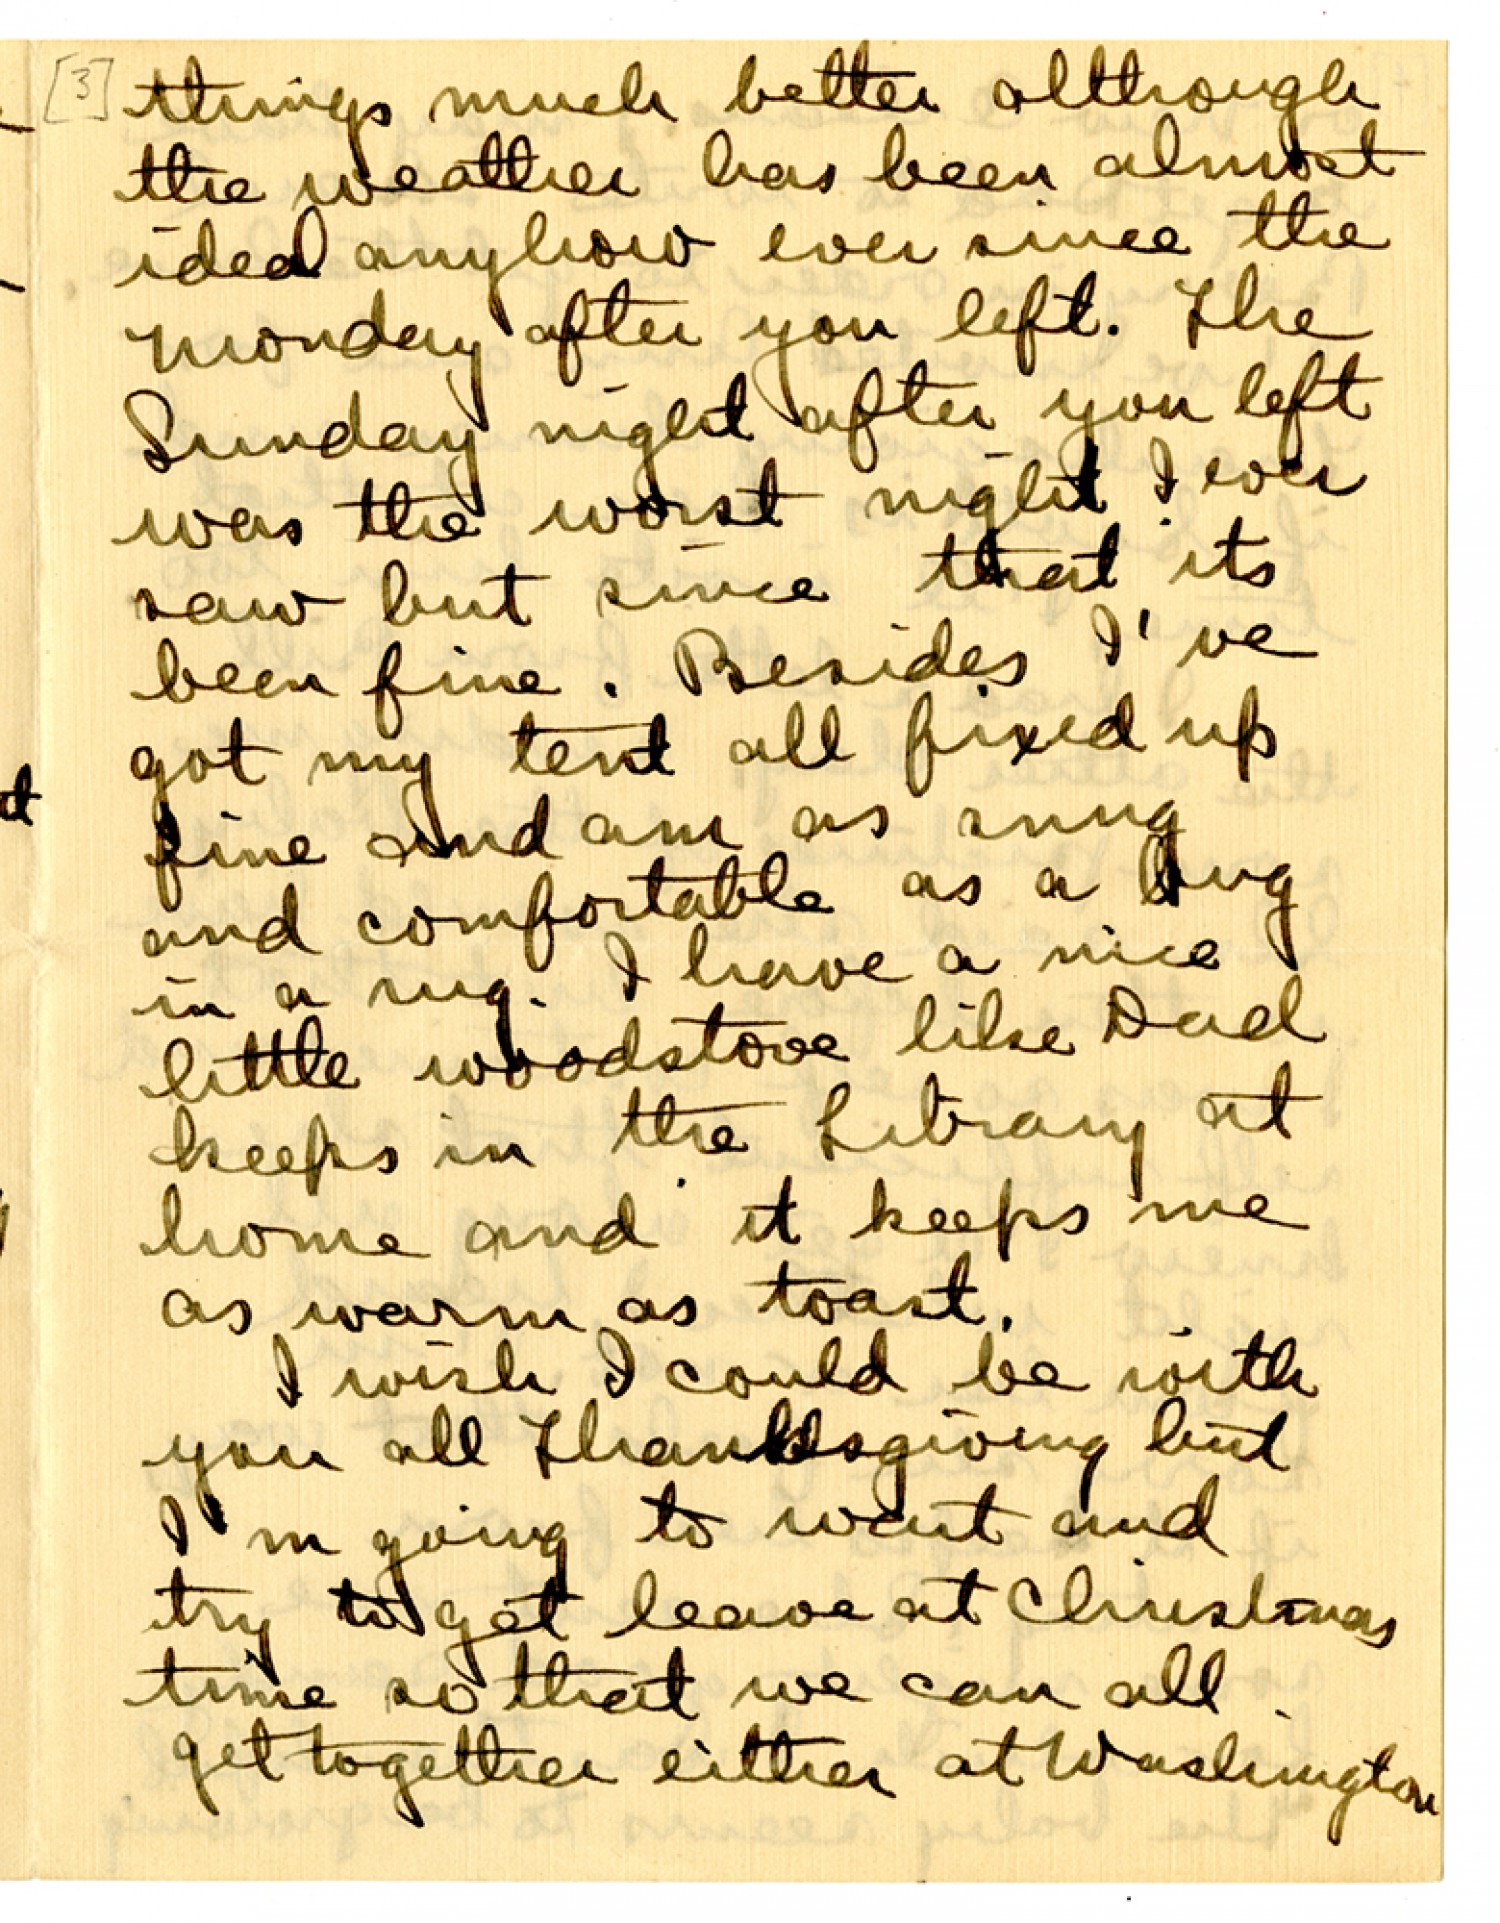 [3] things much better although
the weather has been almost
ideal anyhow ever since the
Monday after you left. The
Sunday night after you left
was the worst night I ever
saw but since that its
been fine. Besides I've
got my tent all fixed up
fine and am as snug
and comfortable as a bug
in a rug. I have a nice
little woodstove like Dad
keeps in the Library at
home and it keeps me
as warm as toast.
I wish I could be with
you all Thanksgiving but
I'm going to wait and
try to get leave at Christmas
time so that we can all
get together either at Washington